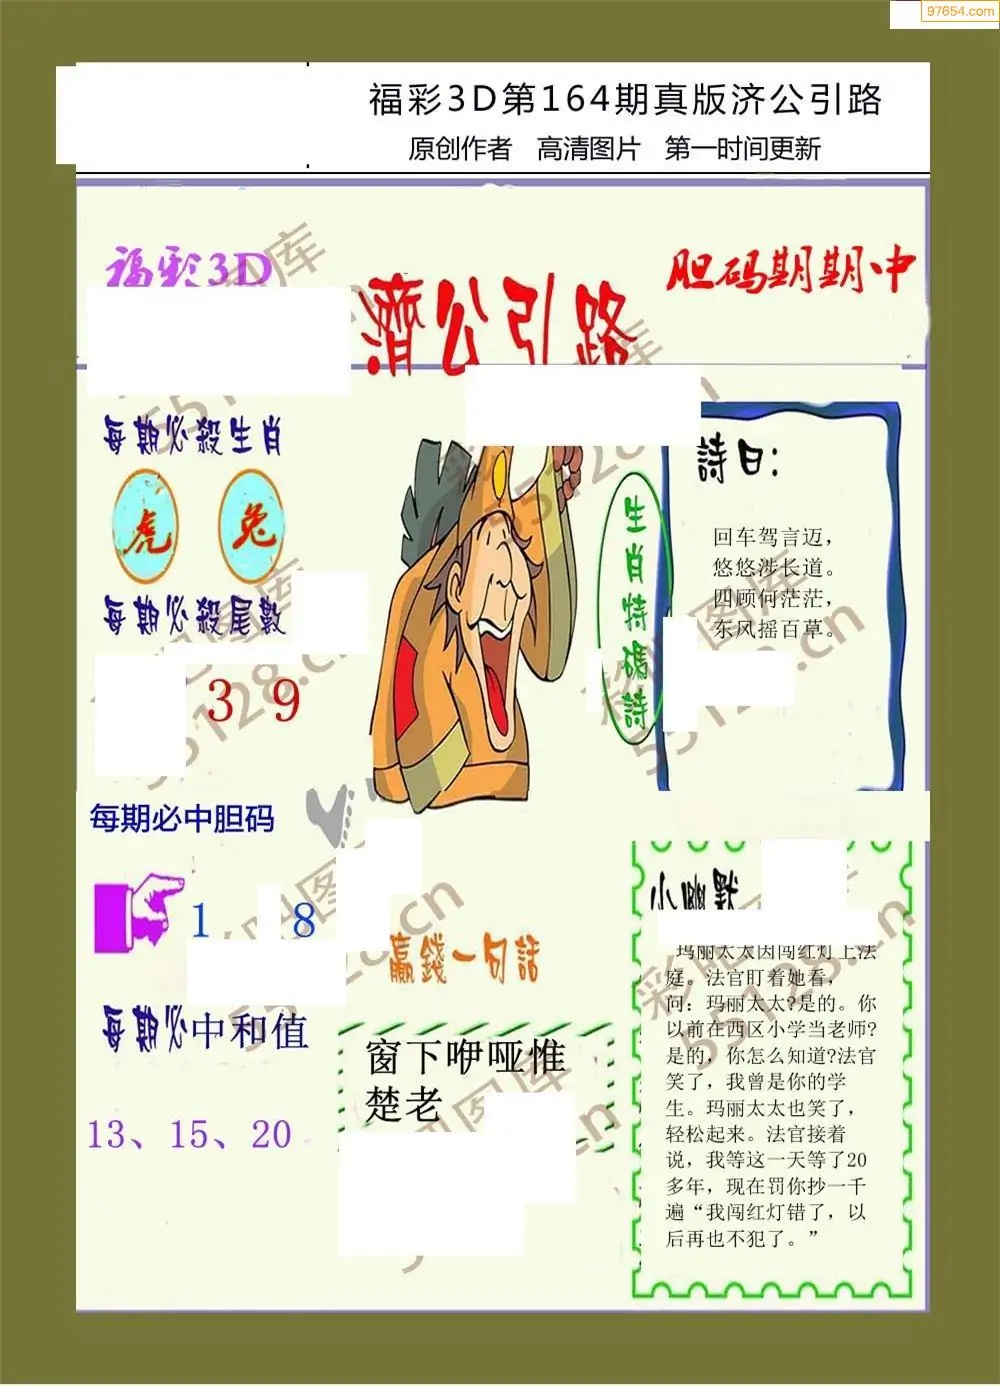 97654.com
福彩3D第164期真版济公引路
原创作者 高清图片 第一时间更新
福彩3D
濟公引路
胆码期期中
每期必殺生肖
虎 兔
每期必殺尾數
3 9
生肖特碼詩
詩曰:
回车驾言迈，
悠悠涉长道。
四顾何茫茫，
东风摇百草。
每期必中胆码
1 8
每期必中和值
13、15、20
贏錢一句話
窗下咿哑惟
楚老
小幽默
玛丽太太因闯红灯上法
庭。法官盯着她看，
问：玛丽太太?是的。你
以前在西区小学当老师?
是的，你怎么知道?法官
笑了，我曾是你的学
生。玛丽太太也笑了，
轻松起来。法官接着
说，我等这一天等了20
多年，现在罚你抄一千
遍“我闯红灯错了，以
后再也不犯了。”